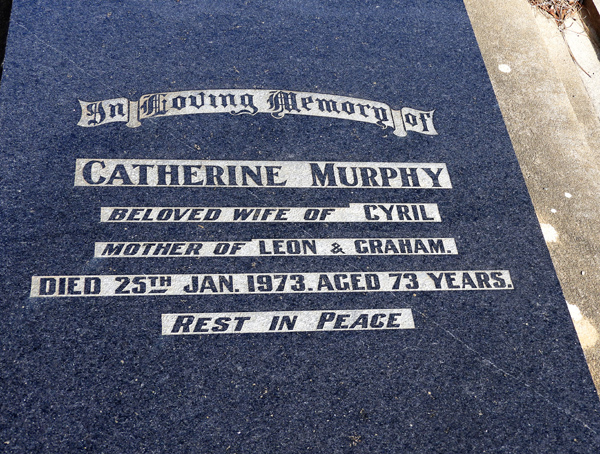 In Loving Memory of
CATHERINE MURPHY
BELOVED WIFE OF CYRIL
MOTHER OF LEON & GRAHAM.
DIED 25TH JAN. 1973. AGED 73 YEARS.
REST IN PEACE